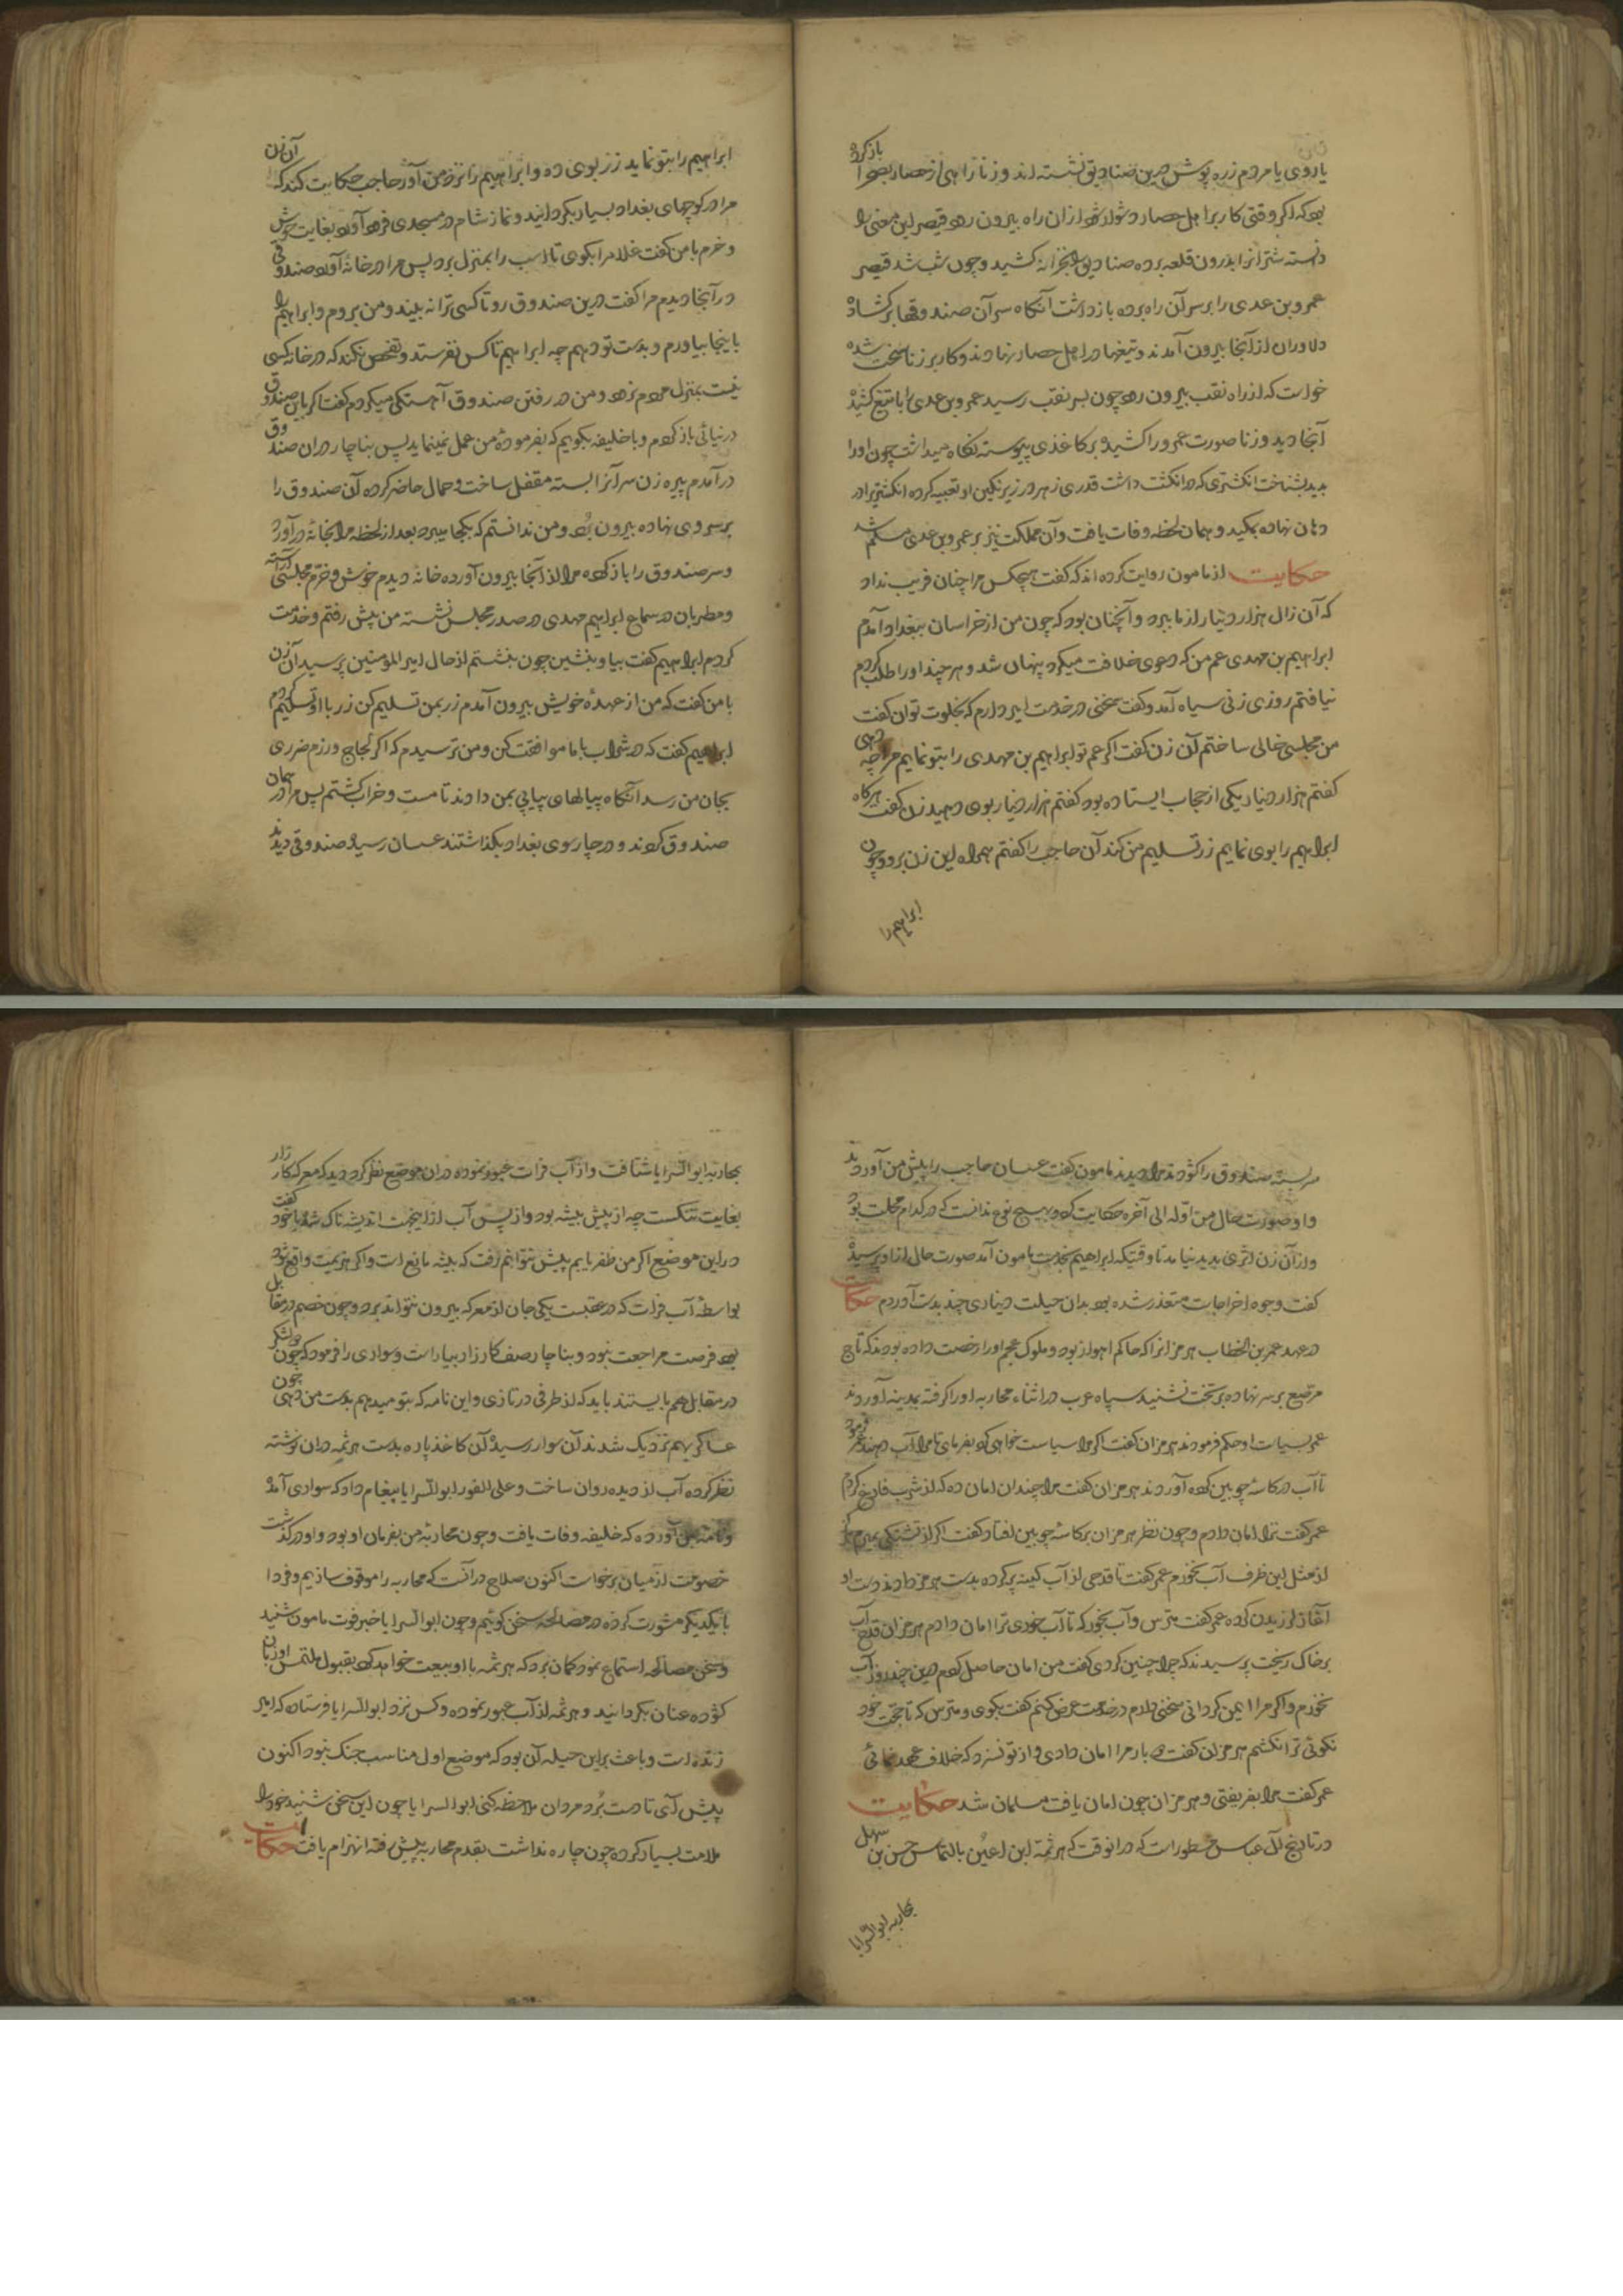 یا روی با مردم زره پوش درین صنادیق نشسته اند و زنا راهی از حصار بصحرا باز کرده
بود که اگر وقتی کار بر اهل حصار دشوار شود از ان راه بیرون رود قیصر این معنی را
دانسته شترانرا بدرون قلعه برده صنادیق را بخزانه کشید و چون شب شد قیصر
عمرو بن عدی را بر سر آن راه برده بازداشت آنکاه سر آن صندوقها بر کشاد
دلاوران از آنجا بیرون آمدند و تیغها در اهل حصار نهادند و کار بر زنا سخت شده
خواست که از راه نقب بیرون رود چون بسر نقب رسید عمرو بن عدی را با تیغ کشیده
آنجا دید و زنا صورت عمرو را کشیده بر کاغذی پیوسته نکاه میداشت چون او را
بدید بشناخت انکشتری که در انکشت داشت قدری زهر در زیر نکین او تعبیه کرده انکشتر را در
دهان نهاده بمکید و همان لحظه وفات یافت و آن مملکت نیز بر عمرو بن عدی مسلم شد
حکایت از مامون روایت کرده اند که گفت هیچکس مرا چنان فریب نداد
که آن زال هزار دینار از ما ببرد و آنچنان بود که چون من از خراسان ببغداد آمدم
ابراهیم بن مهدی عم من که دعوی خلافت میکرد پنهان شد و هر چند او را طلب کردم
نیافتم روزی زنی سیاه آمد و کفت سخنی در خدمت امیر دارم که بخلوت توان کفت
من مجلسی خالی ساختم آن زن کفت اکر عم تو ابراهیم بن مهدی را بتو نمایم مرا چه دهی
کفتم هزار دینار یکی از حجاب ایستاده بود کفتم هزار دینار بوی دهید زن کفت هر کاه
ابراهیم را بوی نمایم زر تسلیم من کند آن حاجب را کفتم همراه این زن برو و چون
ابراهیم را
ابراهیم را بتو نماید زر بوی ده و ابراهیم را نزد من آور حاجب حکایت کند که آن زن
مرا در کوچهای بغداد بسیار بکردانید و نماز شام در مسجدی فرود آورد بغایت خوش
و خرم با من کفت غلام را بکوی تا اسب را بمنزل برد پس مرا در خانه آورد صندوقی
در آنجا دیدم مرا کفت درین صندوق رو تا کسی ترا نه بیند و من بروم و ابراهیم را
باینجا بیاورم و بدست تو دهم چه ابراهیم تا کس نفرستد و تفحص نکند که در خانه کسی
نیست بمنزل مردم نرود و من در رفتن صندوق آهستکی میکردم کفت اکر باین صندوق
در نیائی باز کردم و با خلیفه بکویم که بفرموده من عمل نمینماید پس بناچار در ان صندوق
در آمدم پیره زن سر آنرا بسته مقفل ساخت و حمال حاضر کرده آن صندوق را
بر سر وی نهاده بیرون برد و من ندانستم که بکجا میبرد بعد از لحظه مرا بخانه در آورد
و سر صندوق را باز کرده مرا از آنجا بیرون آورده خانه دیدم خوش و خرم مجلسی آراسته
و مطربان در سماع ابراهیم مهدی در صدر مجلس نشسته من پیش رفتم و خدمت
کردم ابراهیم کفت بیا و بنشین چون بنشستم از حال امیر المؤمنین پرسید آن زن
با من کفت که من از عهده خویش بیرون آمدم زر بمن تسلیم کن زر با او تسلیم کردم
ابراهیم کفت که در شراب با ما موافقت کن و من ترسیدم که اکر لجاج ورزم ضرری
بجان من رسد آنکاه پیالهای پیاپی بمن دادند تا مست و خراب کشتم پس مرا در همان
صندوق کردند و در چار سوی بغداد بکذاشتند عسسان رسیده صندوقی دیدند
سر بسته صندوق را کشودند مرا دیدند مامون کفت عسسان حاجب را پیش من آوردند
و او صورت حال من اوله الی آخره حکایت کرد و بهیچ نوع ندانست که در کدام محلت بود
و از آن زن اثری پدید نیامد تا وقتیکه ابراهیم بخدمت مامون آمد صورت حال از او پرسید
کفت وجوه اخراجات متعذر شده بود بدان حیلت دیناری چند بدست آوردم حکایت
در عهد عمر بن الخطاب هرمزانرا که حاکم اهواز بود و ملوک عجم او را رخصت داده بودند که تاج
مرصع بر سر نهاده بر تخت نشیند سپاه عرب در اثناء محاربه او را کرفته بمدینه آوردند
عمر بسیاست او حکم فرمودند هرمزان کفت اکر مرا سیاست خواهی کرد بفرمای تا مرا آب دهند عمر فرمود
تا آب در کاسه چوبین کرده آوردند هرمزان کفت مرا چندان امان ده که از شرب فارغ کردم
عمر کفت ترا امان دادم و چون نظر هرمزان بر کاسه چوبین افتاد کفت اکر از تشنکی بمیرم
از مثل این ظرف آب نخورم عمر کفت تا قدحی از آبکینه پر کرده بدست هرمز دادند دست او
آغاز لرزیدن کرده عمر کفت مترس و آب بخور که تا آب خوردی ترا امان دادم هرمزان قدح آب
بر خاک ریخت پرسیدند که چرا چنین کردی کفت من امان حاصل کردم چند روز آب
نخورم و اکر مرا ایمن کردانی سخنی دارم در خدمت عرض کنم کفت بکوی و مترس که تا حجت خود
نکوئی ترا نکشم هرمزان کفت دو بار مرا امان دادی و از تو نسزد که خلاف عهد نمائی
عمر کفت مرا بفریفتی و هرمزان چون امان یافت مسلمان شد حکایت
در تاریخ آل عباس مسطور است که در آنوقت که هرثمة ابن اعین بالتماس حسن بن سهل
بمحاربه ابو السرایا
بمحاربه ابو السرایا شتافت و از آب فرات عبور نموده در ان موضع نظر کرد دید که معرکه کارزار
بغایت تنکست چه از پیش بیشه بود و از پس آب ازینجهت اندیشه ناک شد با خود کفت
در این موضع اکر من ظفر یابم پیش نتوانم رفت که بیشه مانع است و اکر هزیمت واقع شود
بواسطه آب فرات که در عقبست یکی جان از معرکه بیرون نتواند برد و چون خصم در مقابل
بود فرصت مراجعت نبود و بناچار صف کارزار بیاراست و سواری را فرمود که چون دو لشکر
در مقابل هم بایستند باید که از طرفی در تازی و این نامه که بتو میدهم بدست من دهی چون
عساکر بهم نزدیک شدند آن سوار رسیده آن کاغذ پاره بدست هرثمه در ان نوشته
نظر کرده آب از دیده روان ساخت و علی الفور ابو السرایا پیغام داد که سواری آمده
و نامه بمن آورده که خلیفه وفات یافت و چون محاربه من بفرمان او بود و او در کذشت
خصومت از میان برخواست اکنون صلاح در آنست که محاربه را موقوف سازیم و فردا
با یکدیکر مشورت کرده در مصالحه سخن کوئیم و چون ابو السرایا خبر فوت مامون شنید
و سخن مصالحه استماع نمود کمان برد که هرثمه با او بیعت خواهد کرد بقبول ملتمس او زبان
کشوده عنان بکردانید و هرثمه از آب عبور نموده و کس نزد ابو السرایا فرستاد که امیر
زنده است و باعث بر این حیله آن بود که موضع اول مناسب جنک نبود اکنون
پیش آی تا دست برد مردان ملاحظه کنی ابو السرایا چون این سخن شنید خود را
ملامت بسیار کرده چون چاره نداشت بقدم محاربه پیش رفته انهزام یافت حکایت